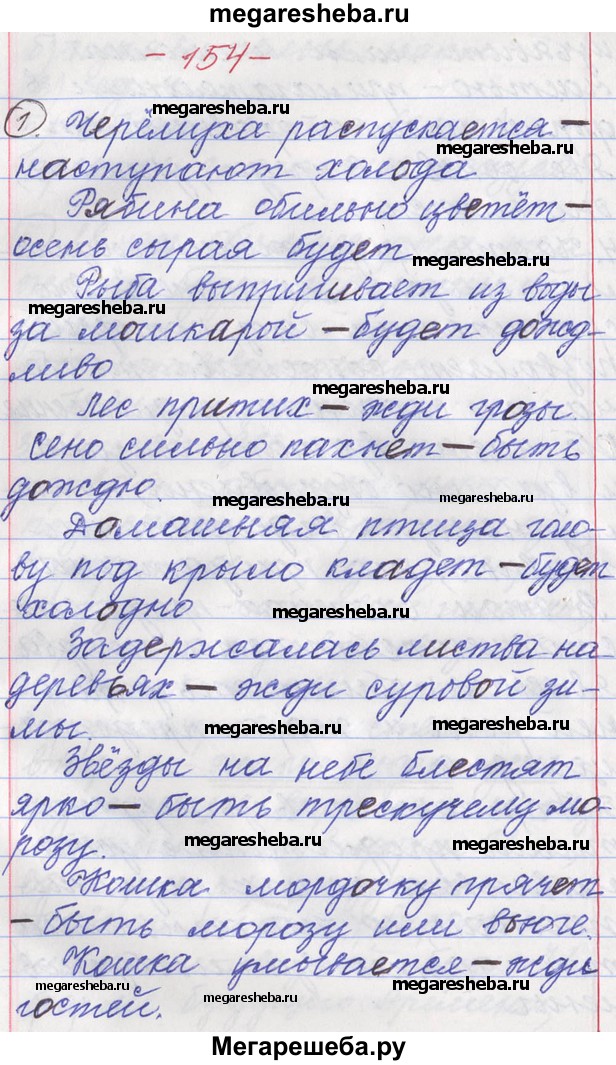 megaresheba.ru
- 154 -
megaresheba.ru
1 Черёмуха распускается —
megaresheba.ru
наступают холода
Рябина обильно цветёт —
осень сырая будет
megaresheba.ru
Рыба выпрыгивает из воды
megaresheba.ru
за мошкарой — будет дожд-
ливо
megaresheba.ru
Лес притих — жди грозы.
Сено сильно пахнет — быть
дождю.
megaresheba.ru megaresheba.ru
Домашняя птица голо-
ву под крыло кладет — будет
холодно
megaresheba.ru
Задержалась листва на
деревьях — жди суровой зи-
мы.
megaresheba.ru megaresheba.ru
Звёзды на небе блестят
ярко — быть трескучему мо-
розу.
megaresheba.ru megaresheba.ru
Кошка мордочку прячет
— быть морозу или вьюге.
Кошка умывается — жди
megaresheba.ru megaresheba.ru megaresheba.ru
гостей.
Мегарешеба.ру